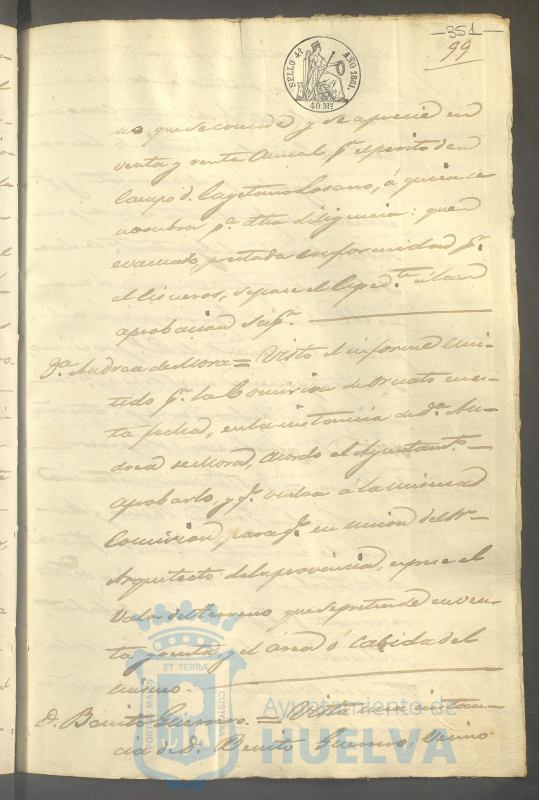 351
99
SELLO 4º AÑO 1861.
40 Ms
no que se conceda, y se aprecie en
venta y renta anual pr. el perito de
campo d. Cayetano Lozano, á quien se
nombra pa. dha diligencia: que
evacuado, prestada conformidad pr.
el Cisneros, se pase el Espedte. a la
aprobacion Supr.
Da. Andrea de Mora = Visto el informe emi-
tido pr. la Comision de Ornato en es-
ta fecha, en la instancia de Da. An-
drea de Mora, acordó el Ayuntamto.
aprobarlo, y qe. vuelva á la misma
Comision, para qe. en union del Sr.
Arquitecto de la provincia, esprese el
valor del terreno que se pretende en ven-
ta y renta, y el área ó cabida del
mismo.
D. Benito Guerrero. = Vista una instan-
cia de D. Benito Guerrero, vecino
PORTUS MARIS ET TERRAE CUSTODIA
Ayuntamiento de
HUELVA